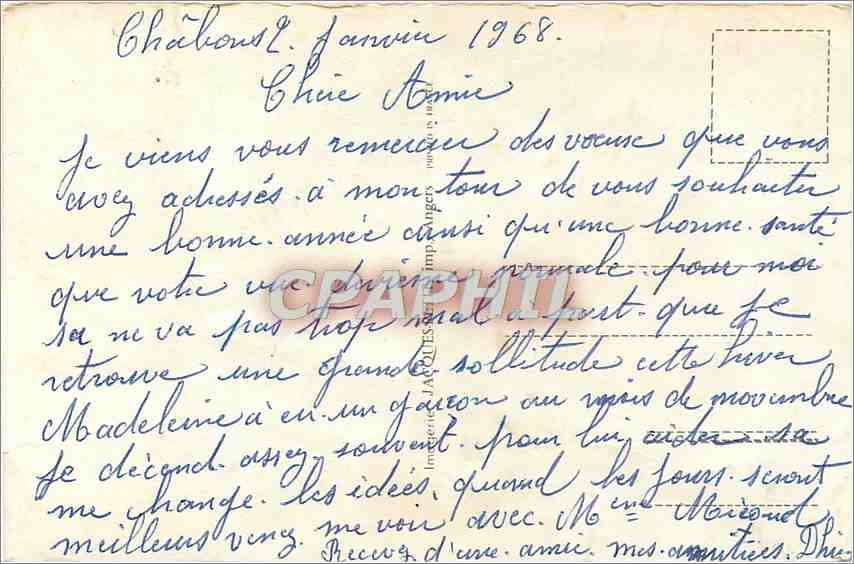 Châbons 2. Janvier 1968.
Chère Amie
Je viens vous remercier des voeuse que vous
avez adressés. à mon tour de vous souhaiter
une bonne. année ainsi qu'une bonne. santé
que votre vue. devienne normale. pour moi
sa ne va pas trop mal a part. que je
retrouve une grande. sollitude cette hiver
Madeleine à eu. un garçon au mois de novembre
je décend. assez souvent. pour lui aider sa
me change. les idées, quand les jours. seront
meilleurs venez me voir avec. Mme
Recevez d'une. amie. mes. amitiées.
CPAPHIL
Imagerie JACQUES imp. Angers PRINTED IN FRANCE